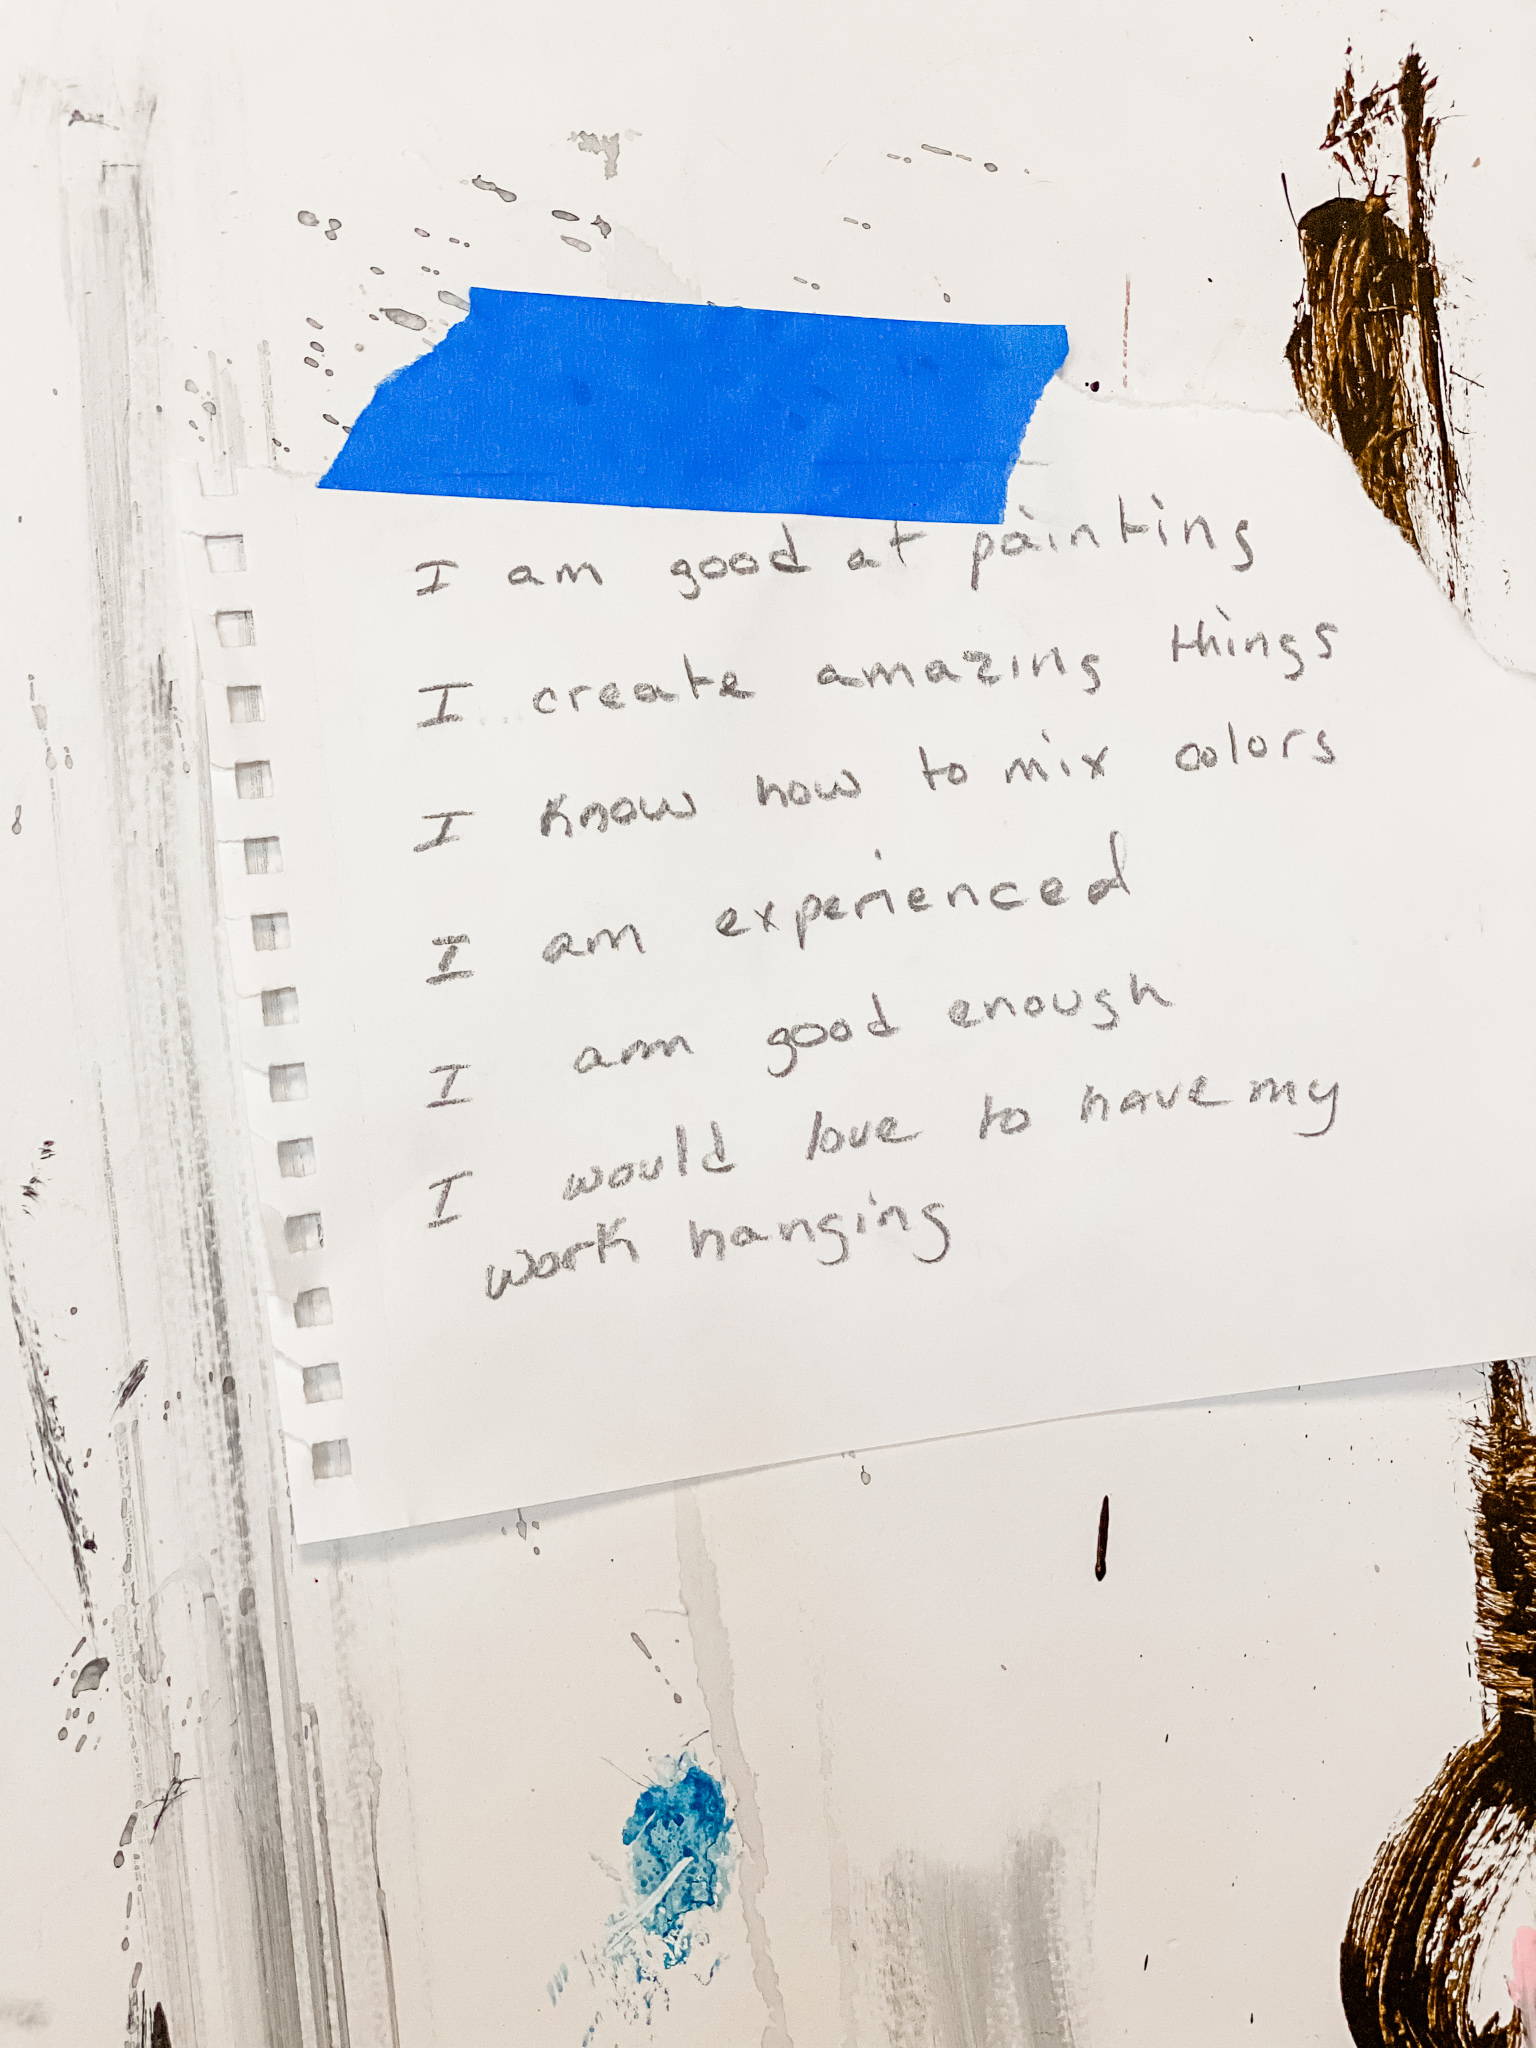 I am good at painting
I create amazing things
I know how to mix colors
I am experienced
I am good enough
I would love to have my
work hanging